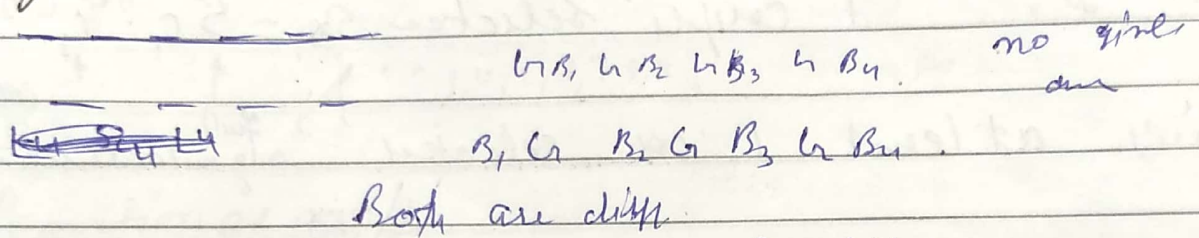 G B1 G B2 G B3 G B4. no girls
B1 G B2 G B3 G B4.
Both are diff.